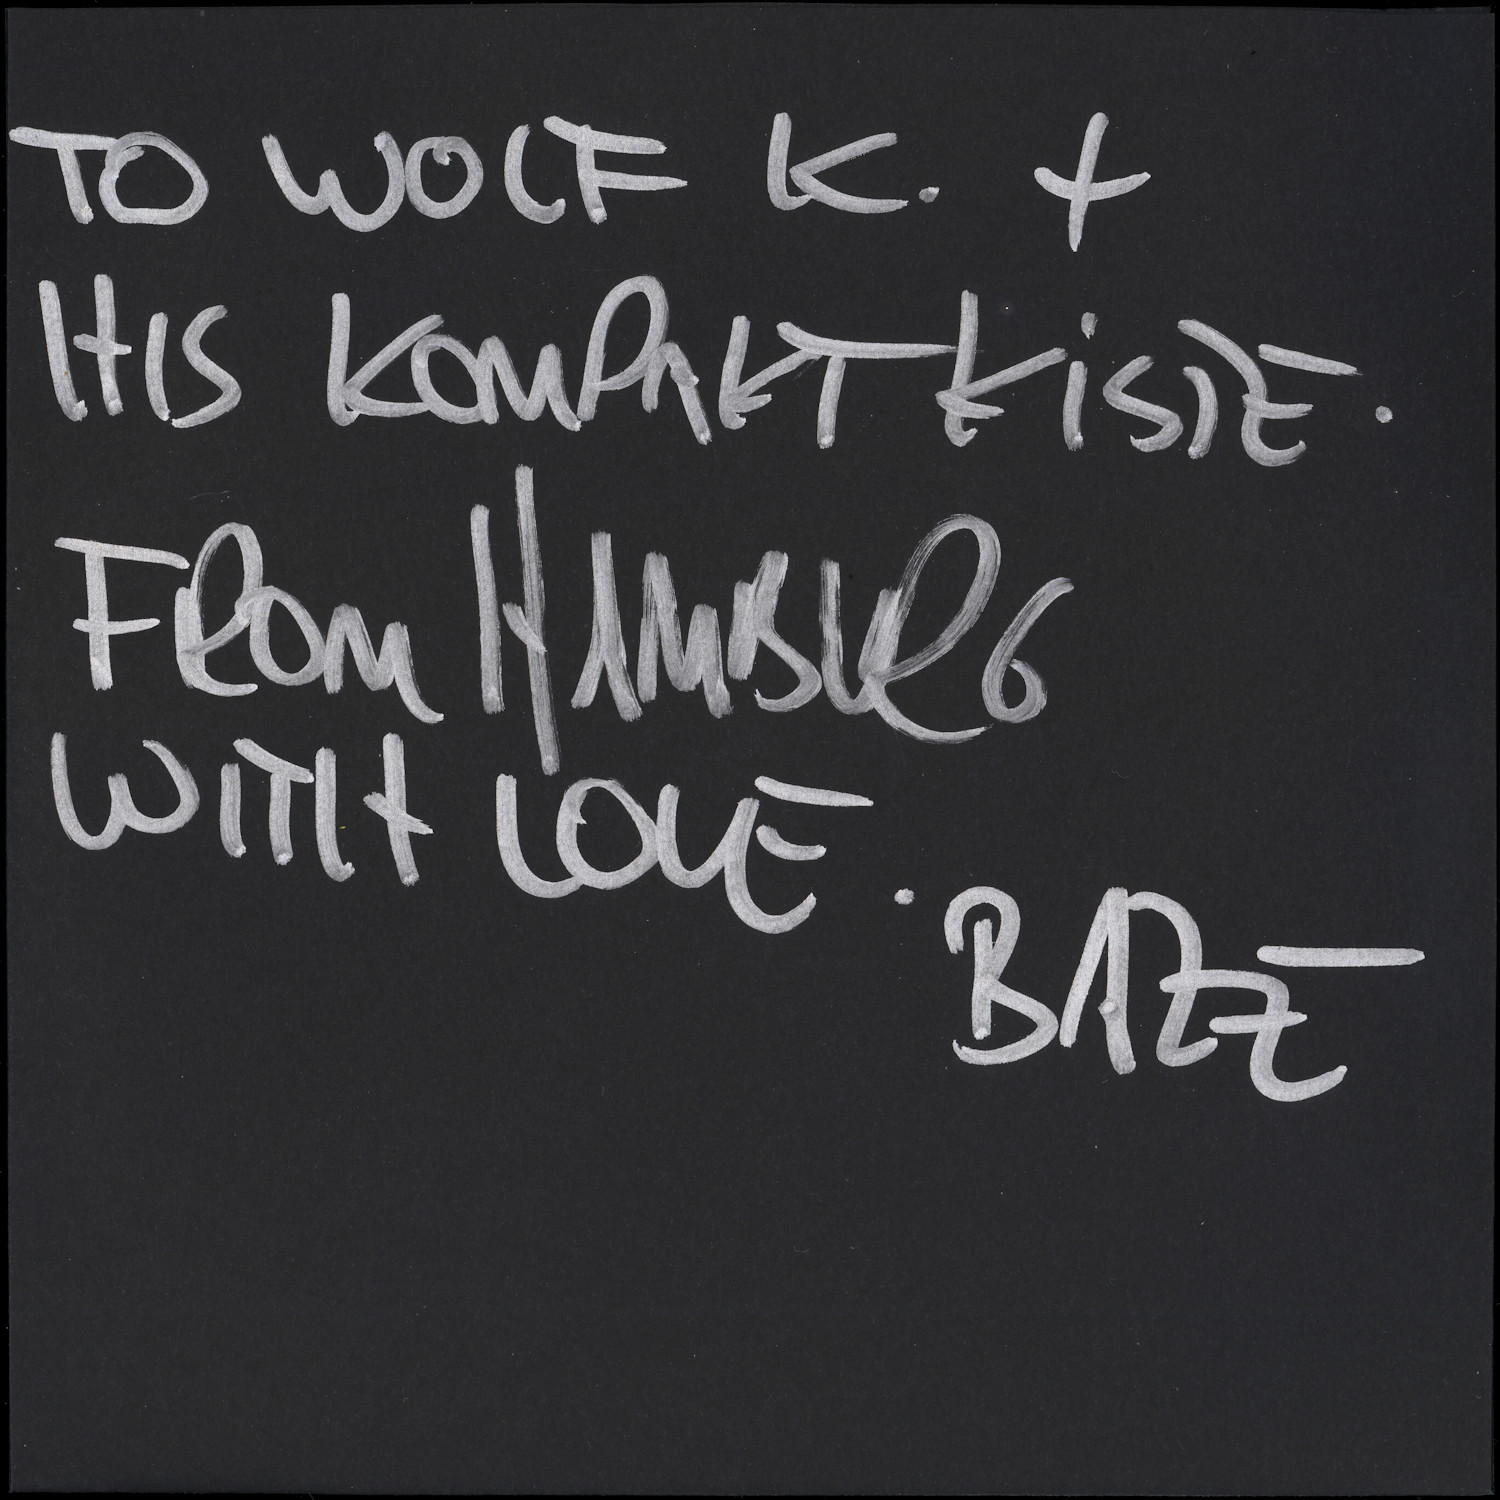 TO WOLF K. +
HIS KOMPAKTKISTE.
FROM HAMBURG
WITH LOVE.
BAZE